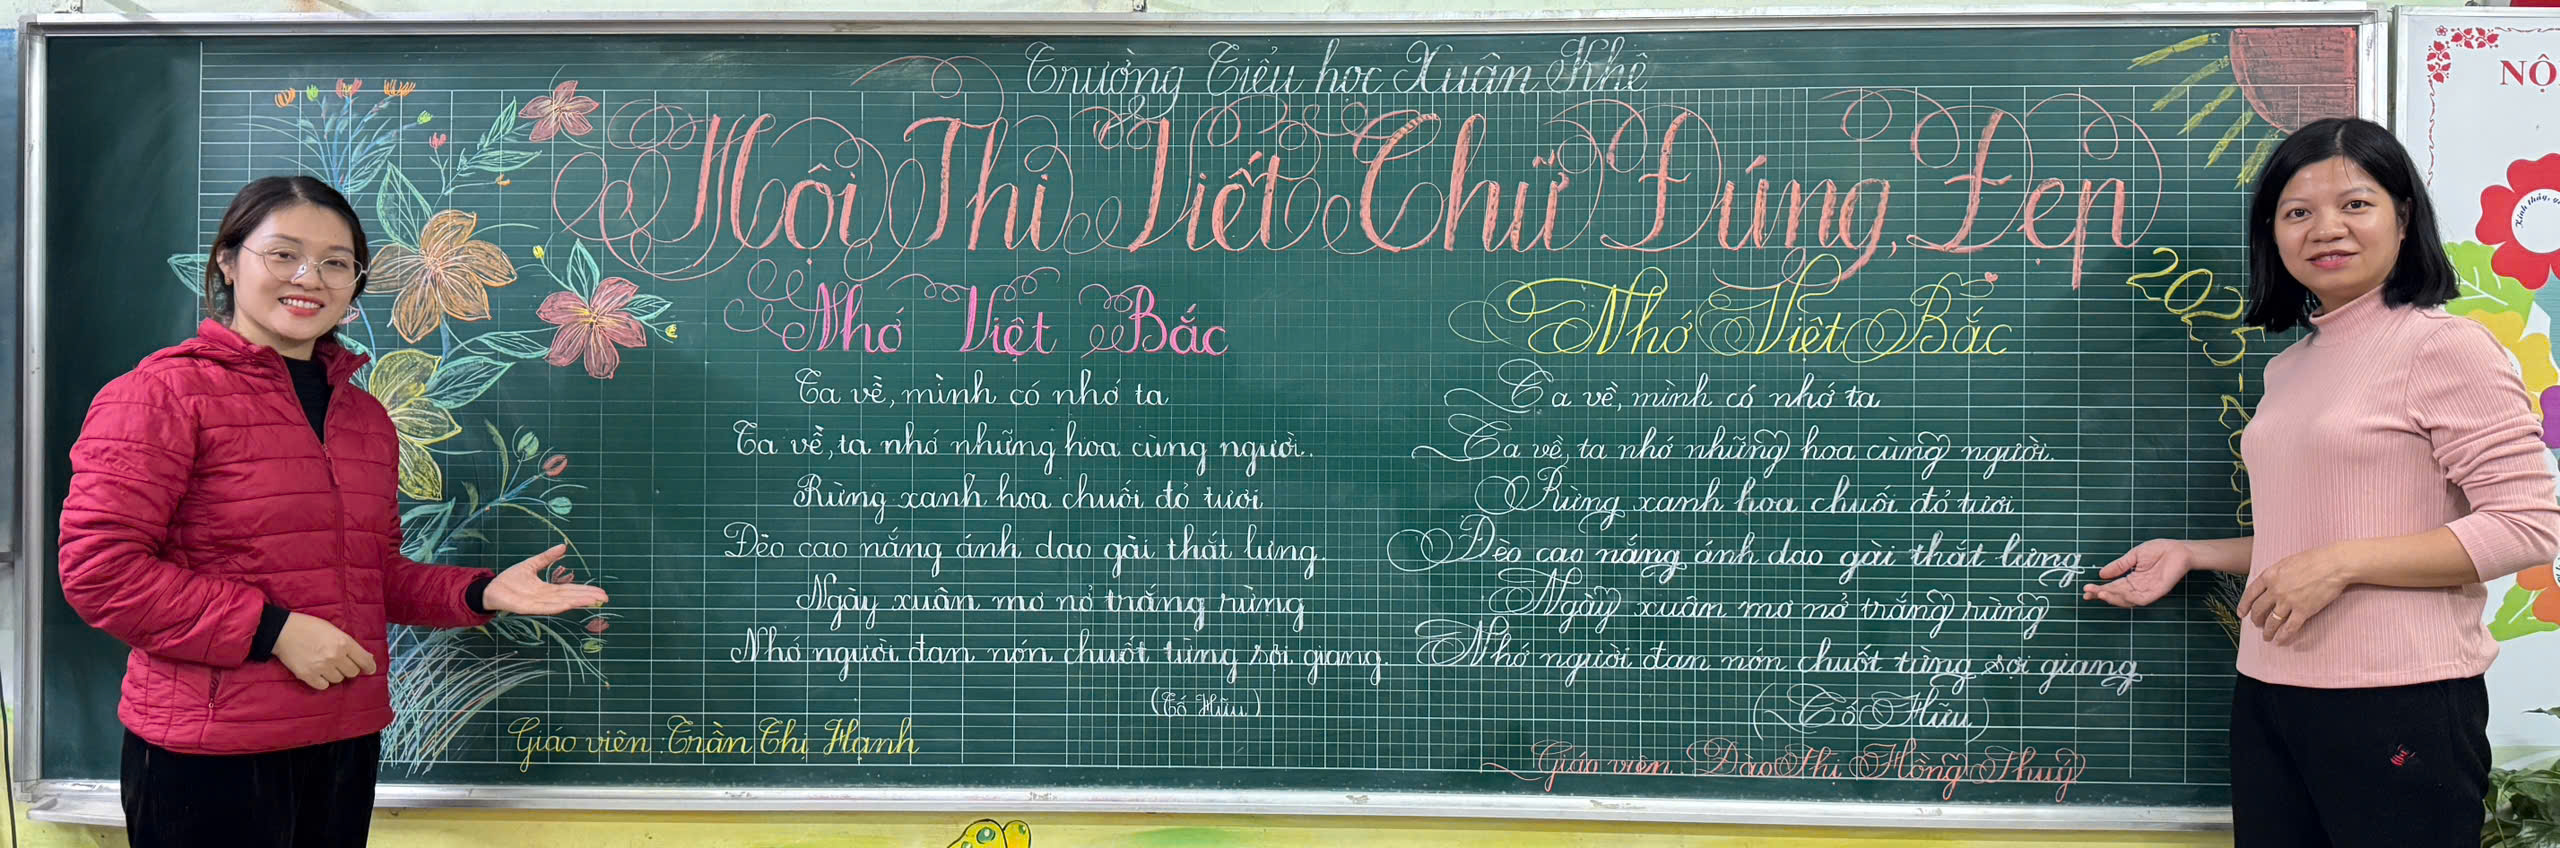 Trường Tiểu học Xuân Khê
Hội Thi Viết Chữ Đúng, Đẹp
Nhớ Việt Bắc
Ta về, mình có nhớ ta
Ta về, ta nhớ những hoa cùng người.
Rừng xanh hoa chuối đỏ tươi
Đèo cao nắng ánh dao gài thắt lưng.
Ngày xuân mơ nở trắng rừng
Nhớ người đan nón chuốt từng sợi giang.
(Tố Hữu)
Giáo viên: Trần Thị Hạnh
Nhớ Việt Bắc
Ta về, mình có nhớ ta
Ta về, ta nhớ những hoa cùng người.
Rừng xanh hoa chuối đỏ tươi
Đèo cao nắng ánh dao gài thắt lưng.
Ngày xuân mơ nở trắng rừng
Nhớ người đan nón chuốt từng sợi giang
(Tố Hữu)
Giáo viên: Đào Thị Hồng Thuỷ
NỘ
Kính thầy,